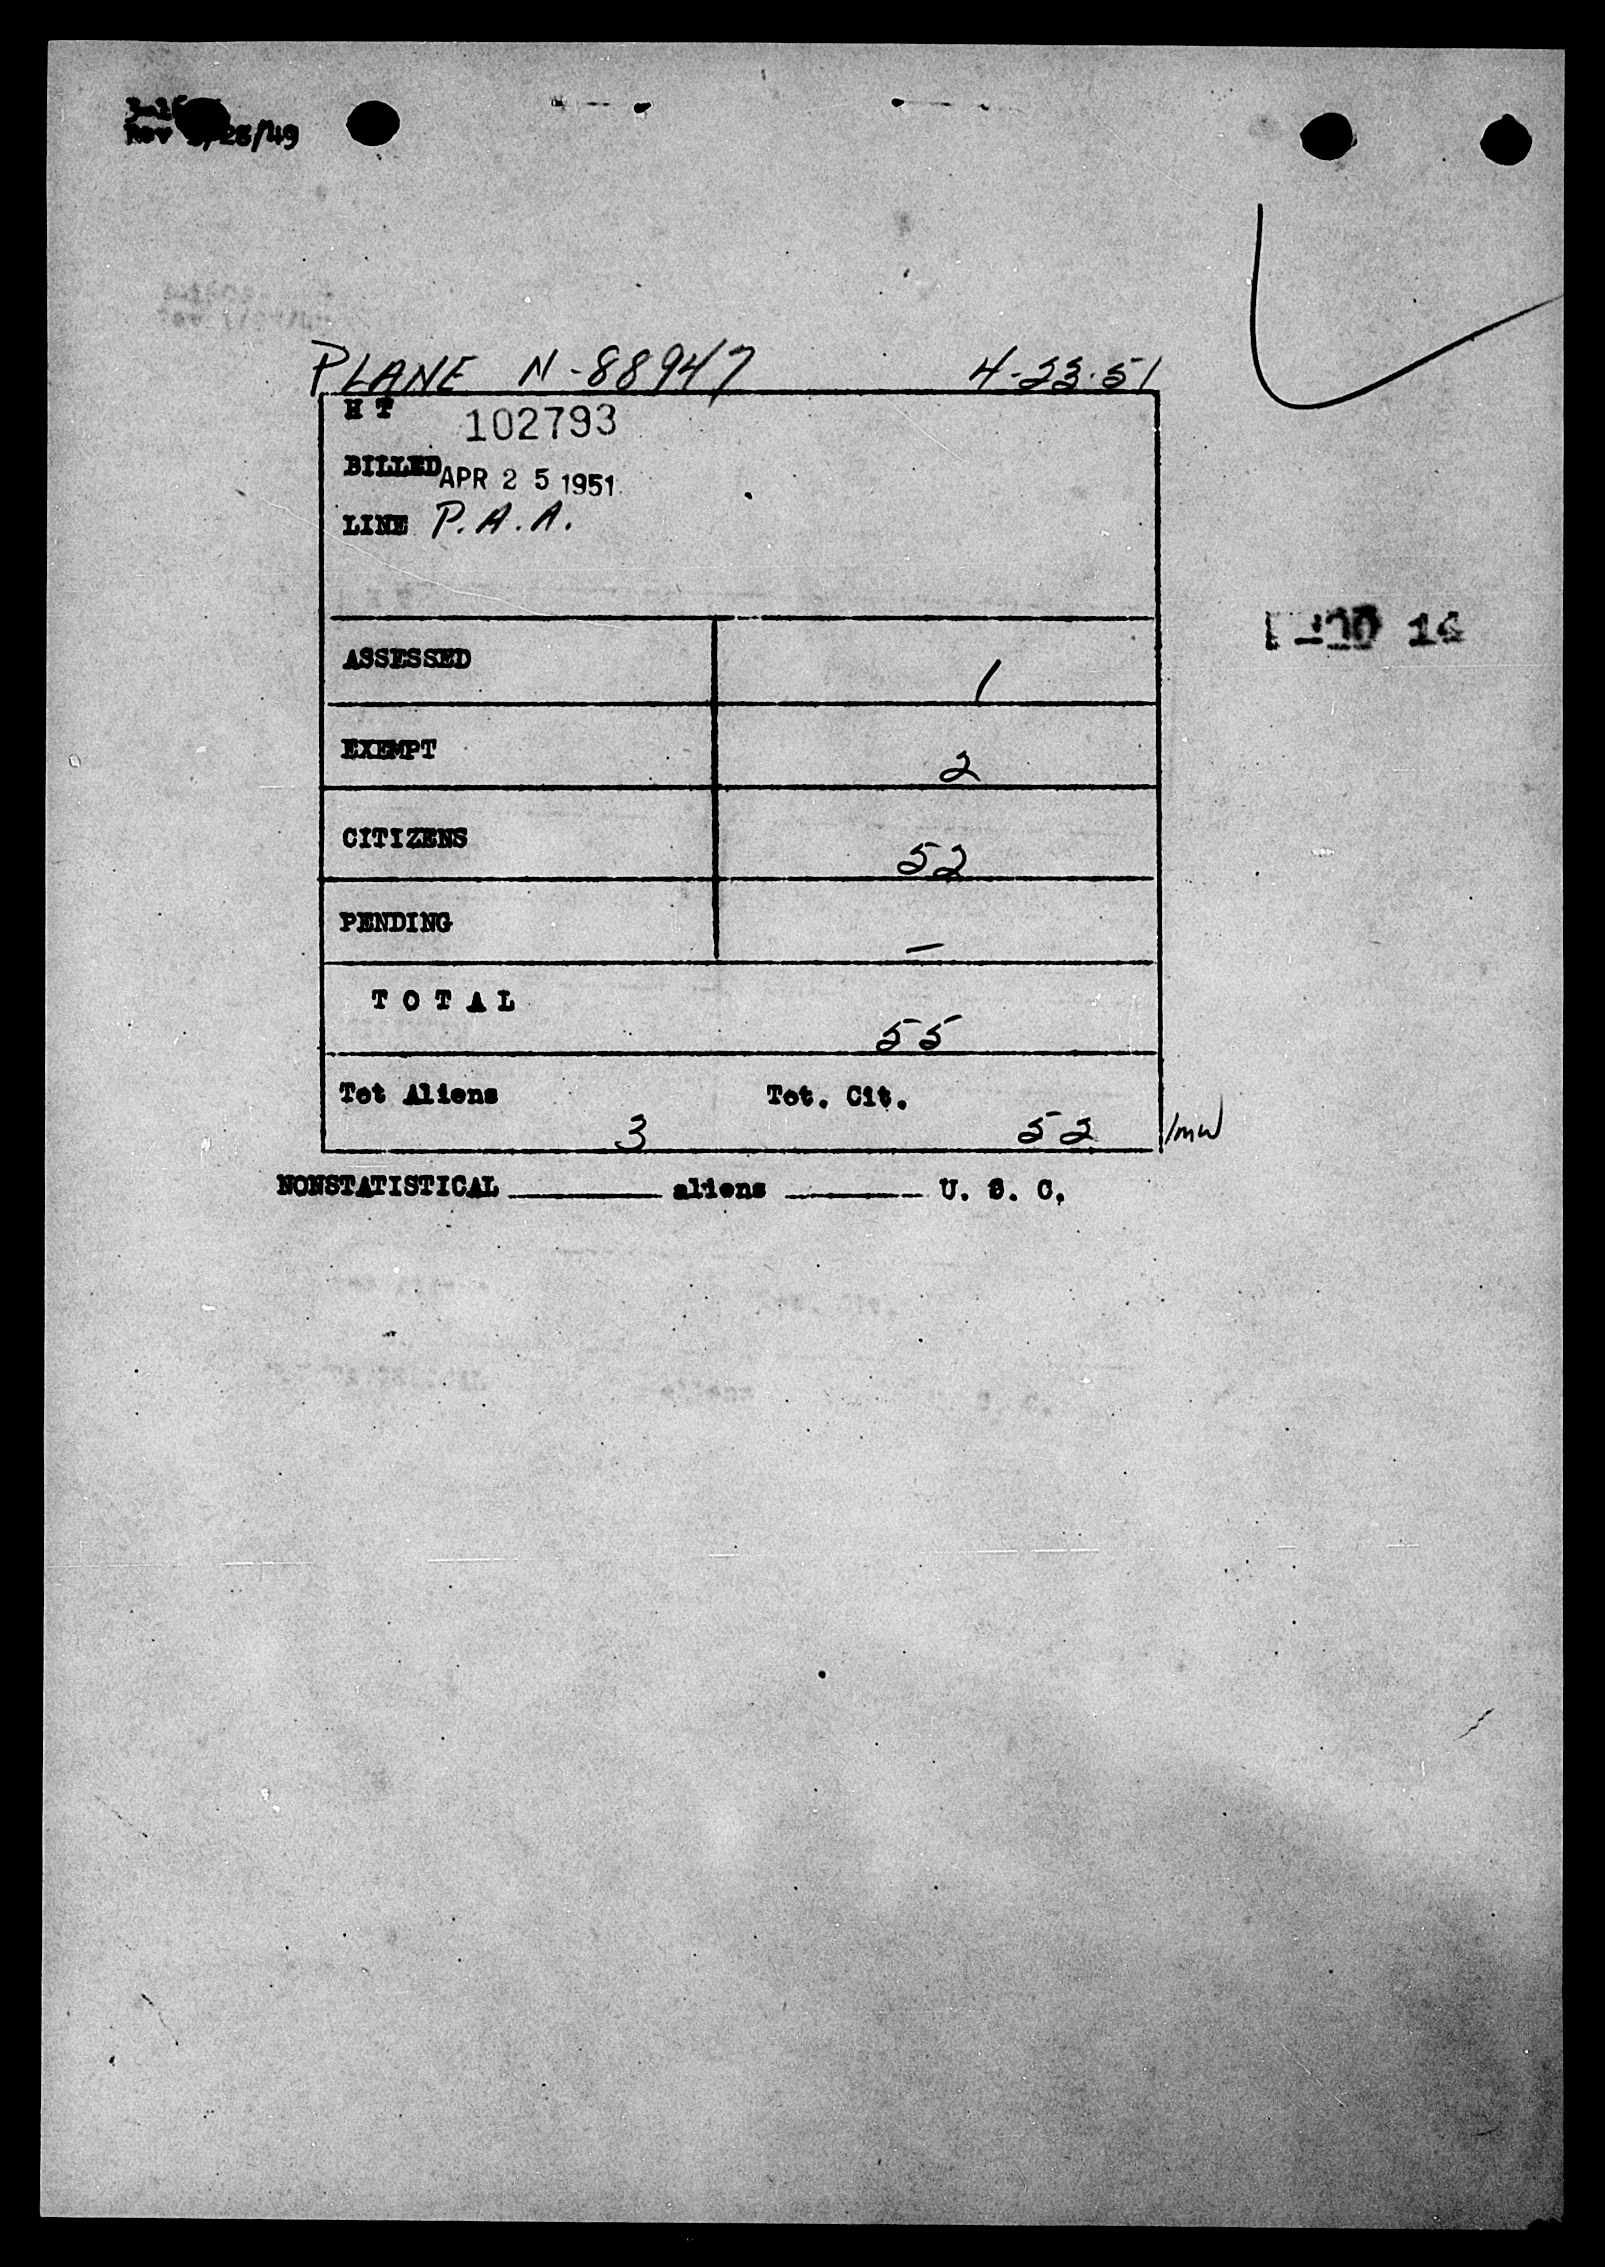 Rev /28/49
PLANE N-88947 4-23-51
H T 102793
BILLED APR 25 1951
LINE P.A.A.
ASSESSED 1
EXEMPT 2
CITIZENS 52
PENDING —
TOTAL 55
Tot Aliens 3 Tot. Cit. 52 /mw
NONSTATISTICAL ______ aliens ______ U. S. C.